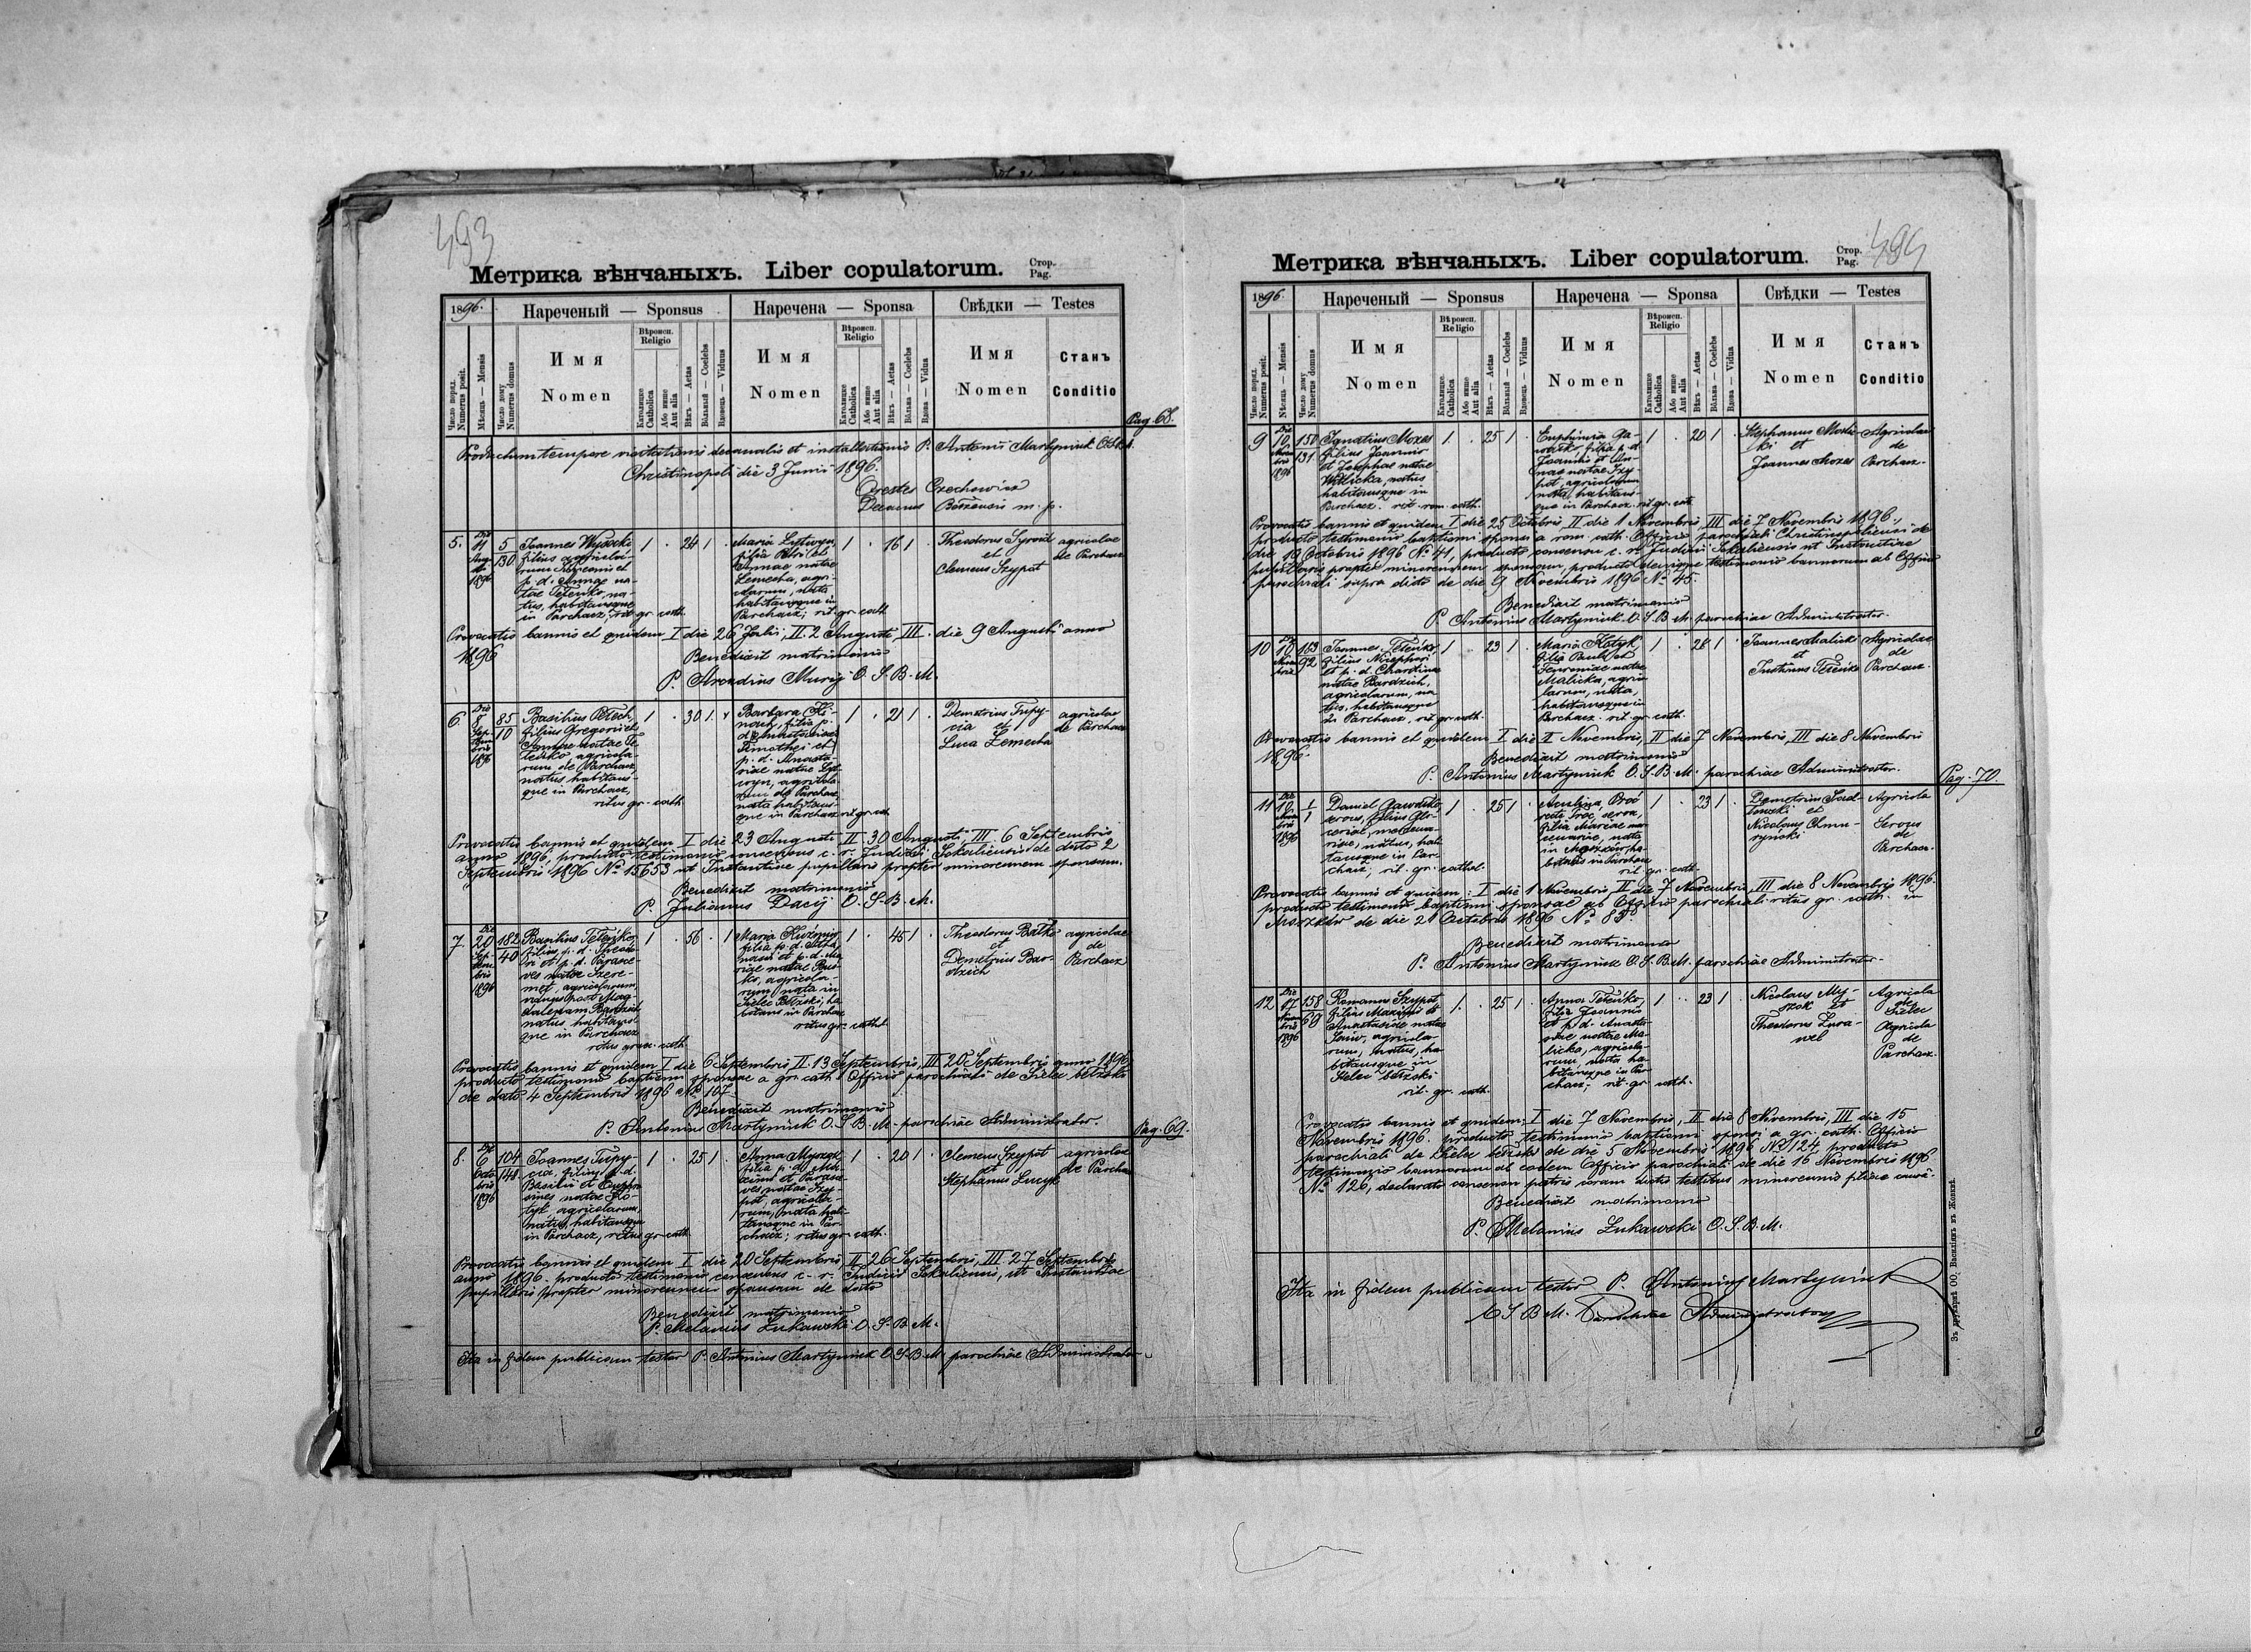 493
Метрика вѣнчаныхъ. Liber copulatorum. Стор. Pag.
1896.
Нареченый — Sponsus
Наречена — Sponsa
Свѣдки — Testes
Число поряд. Numerus posit.
Мѣсяць — Mensis
Число дому Numerus domus
Имя Nomen
Вѣроисп. Religio
Католицке Catholica
Або инше Aut alia
Вѣкъ — Aetas
Вôльный — Coelebs
Вдовець — Viduus
Имя Nomen
Вѣроисп. Religio
Католицке Catholica
Або инше Aut alia
Вѣкъ — Aetas
Вôльна — Coelebs
Вдова — Vidua
Имя Nomen
Станъ Conditio
Pag. 68.
Productum tempore visitationis decanalis et installationis P. Antonii Martyniuk
Christinopoli die 3 Junii 1896.
Orestes Czechowicz
Decanus m. p.
5. Die 11 Aug. 1896 5 130
Joannes Wysocki
filius agricola-
rum
p. d. Annae na-
tae Teteńko, na-
tus, habitansque
in Parchacz, rit. gr. cath.
1 . 24 1 .
Maria Lytwyn
filia Petri et
Annae natae
Zemecha, agri-
colarum, nata
habitansque in
Parchacz; rit. gr. cath.
1 . 16 1 .
Theodorus
et
Clemens Szypot
agricolae
de Parchacz
Provocatis bannis et quidem I die 26 Julii, II. 2 Augusti III. die 9 Augusti anno
1896
Benedixit matrimonio
P. Arcadius O. S. B. M.
6. Die 8 Septembris 1896 85 10
Basilius
filius Gregorii et
Annae natae Te-
teńko agricola-
rum de Parchacz
natus habitans-
que in Parchacz,
ritus gr. cath.
1 . 30 1 .
Barbara
filia p.
d.
Timothei et
p. d. Anasta-
siae natae Lyt-
wyn, agricola-
rum de Parchacz
nata habitans-
que in Parchacz rit gr. cath.
1 . 21 1 .
Demetrius Tupy-
cia et
Luca Zemecha
agricolae
de Parchacz
Provocatis bannis et quidem I die 23 Augusti II 30 Augusti, III 6 Septembris
anno 1896, producto testimonio consensus c. r. Judicii Sokaliensis de dato 2
Septembris 1896 No 15653 ut Instantiae pupillaris propter minorennem sponsam.
Benedixit matrimonio
P. Julianus Dacij O. S. B. M.
7. Die 20 Septembris 1896 182 40
Basilius Teteńko
filius p. d. Theodo-
ri et p. d. Parasce-
ves natae Szere-
met, agricolarum,
viduus post Mag-
dalenam
natus habitans-
que in Parchacz
ritus graec. cath.
1 . 56 . 1
Maria Kuźmin
filia p. d. Atha-
nasii et p. d. Ma-
riae natae
agricola-
rum nata in
Sielec Bełzski, ha-
bitans in Parchacz
ritus gr. cathl.
1 . 45 1
Theodorus Batko
et
Demetrius Bar-
dzich
agricolae
de
Parchacz
Provocatis bannis et quidem I die 6 Septembris II. 13 Septembris, III 20 Septembris anno 1896
producto testimonio baptismi sponsae a gr. cath. Officio parochiali de Sielec bełzski
de dato 4 Septembris 1896 No 107
Benedixit matrimonio
P. Antonius Martyniuk O. S. B. M. parochiae Administrator.
Pag. 69.
8. Die 6 Octobris 1896 104 148
Joannes Tupy-
cia, filius p. d.
Basilii et Euphro-
sines natae Ko-
tyk agricolarum
natus, habitansque
in Parchacz, ritus gr. cath.
1 . 25 1 .
Anna Myszok
filia p. d.
et Parasce-
ves natae Szy-
pot, agricola-
rum, nata habi-
tansque in Par-
chacz; ritus gr. cath.
1 . 20 1 .
Clemens Szypot
et
Stephanus Lucyk
agricolae
de Parchacz
Provocatis bannis et quidem I die 20 Septembris, II 26 Septembris, III. 27 Septembris
anno 1896. producto testimonio consensus c. r. Judicii Sokaliensis, ut Instantiae
pupillaris propter minorennem sponsam de dato
Benedixit matrimonio
P. Melanius Łukawski O. S. B. M.
Ita in fidem publicam testor P. Antonius Martyniuk O. S. B. M. parochiae Administrator
494
Метрика вѣнчаныхъ. Liber copulatorum. Стор. Pag.
1896.
Нареченый — Sponsus
Наречена — Sponsa
Свѣдки — Testes
Число поряд. Numerus posit.
Мѣсяць — Mensis
Число дому Numerus domus
Имя Nomen
Вѣроисп. Religio
Католицке Catholica
Або инше Aut alia
Вѣкъ — Aetas
Вôльный — Coelebs
Вдовець — Viduus
Имя Nomen
Вѣроисп. Religio
Католицке Catholica
Або инше Aut alia
Вѣкъ — Aetas
Вôльна — Coelebs
Вдова — Vidua
Имя Nomen
Станъ Conditio
9 Die 10 Novembris 1896 150 131
Ignatius Mozes
filius Joannis
et Josephae natae
Witlicka, natus
habitansque in
Parchacz. rit. rom. cath.
1. . 25 1 .
Euphimia Ga-
filia p. d.
Joannis et An-
nae natae Szy-
pot, agricolarum
nata, habitans-
que in Parchacz rit gr. cath
1 . 20 1 .
Stephanus
et
Joannes Mozes
Agricolae
de
Parchacz.
Provocatis bannis et quidem I die 25 Octobris, II die 1 Novembris, III die 7 Novembris 1896,
producto testimonio baptismi sponsi a rom. cath. Officio parochiali Christinopoliensi de
die 19 Octobris 1896 No 41, producto consensu c. r. Judicii Sokaliensis ut Instantiae
pupillaris propter minorennem sponsam, producto denique testimonio bannorum ab Officio
parochiali supra dicto de die 9 Novembris 1896 No 45.
Benedixit matrimonio
P. Antonius Martyniuk O. S. B. M. parochiae Administrator.
10 Die 10 Novembris 163 92
Joannes Teteńko
filius Nicephori
et p. d.
natae Bardzich,
agricolarum, na-
tus, habitansque
in Parchacz, rit. gr. cath.
1 . 23 1 .
Maria Kotyk
filia Pauli et
natae
Malicka, agrico-
larum, nata,
habitansque in
Parchacz. rit. gr. cath.
1 . 28 1 .
Joannes Malick
et
Justinus Teteńko
Agricolae
de
Parchacz.
Provocatis bannis et quidem I die 1 Novembris, II die 7 Novembris, III die 8 Novembris
1896.
Benedixit matrimonio
P. Antonius Martyniuk O. S. B. M. parochiae Administrator.
Pag. 70.
11 Die 10 Novembris 1896 1 1
Daniel
servus, filius
natus, habi-
tansque in Par-
chacz, rit. gr. cathol.
1 . 25 1 .
Paulina
serva,
filia Mariae mer-
cenariae, nata
in Mszków, ha-
bitans in Parchacz
rit. gr. cath.
1 . 23 1 .
Demetrius
et
Nicolaus Chmu-
ryński
Agricola
Servus
de
Parchacz.
Provocatis bannis et quidem: I die 1 Novembris, II die 7 Novembris, III die 8 Novembris 1896.
producto testimonio baptismi sponsae ab Officio parochiali ritus gr. cath. in
de die 21 Octobris 1896 No 83.
Benedixit matrimonio
P. Antonius Martyniuk O. S. B. M. parochiae Administrator.
12 Die 17 Novembris 1896 158 69
Romanus Szypot
filius Maximi et
Anastasiae natae
agricola-
rum, natus, ha-
bitansque in
Sielec bełzski
rit. gr. cath.
1. . 25 1 .
Anna Teteńko,
filia Joannis
et p. d. Anasta-
siae natae Ma-
licka, agricola-
rum nata ha-
bitansque in Par-
chacz; rit. gr. cath.
1 . 23 1 .
Nicolaus My-
szok et
Theodorus Żura-
wel
Agricola
de
Sielec
Agricola
de
Parchacz.
Provocatis bannis et quidem: I die 7 Novembris, II die 8 Novembris, III die 15
Novembris 1896. producto testimonio baptismi sponsi a gr. cath. Officio
parochiali de Sielec bełzski de die 5 Novembris 1896 No 124, producto
testimonio bannorum ab eodem Officio parochiali de die 16 Novembris 1896
No 126, declarato consensu patris coram testibus minorennis filiae causâ.
Benedixit matrimonio
P. Melanius Łukawski O. S. B. M.
Ita in fidem publicam testor P. Antonius Martyniuk
O S B M. Parochiae Administrator
Зъ друкарнѣ ОО. Василіянъ въ Жовквѣ.